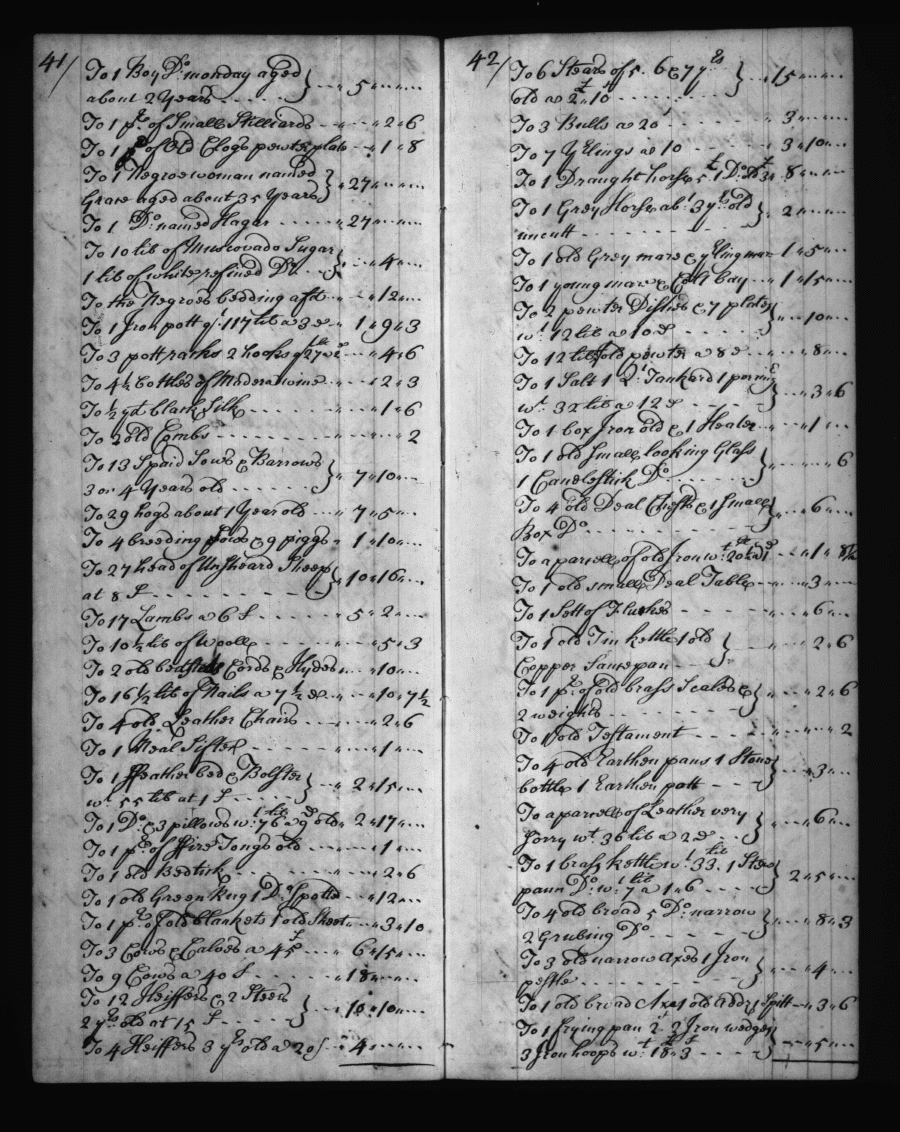 41/
To 1 Boy Do. monday aged
about 2 Years - - - - - } " 5 " " "
To 1 pr. of Small Stilliards - - " " 2 " 6
To 1 of Old Clogs pewter plate " " 1 " 8
To 1 Negroe woman named
Grace aged about 35 Years } " 27 " " "
To 1 Do. named Hagar - - - - " 27 " " "
To 10 lib of Muscovado Sugar
1 lib of white refined Do. - - } " " 4 " "
To the Negroes bedding a ft " " 12 " "
To 1 Iron pott qt. 117 lib a 3d - 1 " 9 " 3
To 3 pottracks 2 hooks qt 27 " " 4 " 6
To 4½ bottles of Madera wine - " " 2 " 3
To ½ yd. black Silk - - - - " " 1 " 6
To 2 old Combs - - - - - " " " 2
To 13 Spaid Sows & Barrows
3 or 4 Years old - - - - - } " 7 " 10 "
To 29 hogs about 1 Year old - - 7 " 5 "
To 4 breeding Sows & 9 piggs " 1 " 10 "
To 27 head of Unsheard Sheep
at 8 S - - - - - - } " 10 " 16 "
To 17 Lambs a 6 S - - - - 5 " 2 "
To 10½ lib of Wooll - - - - " " 5 " 3
To 2 old bedsteads Cords & Hydes " " 10 "
To 16½ lib of Nails a 7½ d - " " 10 " 7½
To 4 old Leather Chairs - - " " 2 " 6
To 1 Meal Sifter - - - - " " 1 "
To 1 ffeather bed & Bolster
wt. 55 lib at 1 S - - - - } 2 " 15 "
To 1 Do. & 3 pillows wt. 76 lib a 9d old " 2 " 17 "
To 1 pr. of ffire Tongs old - - " " 1 "
To 1 old Bedtick - - - - " " 2 " 6
To 1 old Green Rug 1 Do. Spotted - " " 12 "
To 1 pr. of old blankets 1 old Sheet " " 3 " 10
To 3 Cows & Calves a 45 S - - " 6 " 15 "
To 9 Cows a 40 S - - - - " 18 " "
To 12 Heiffers & 2 Steers
2 yrs. old at 15 S - - - - } " 10 " 10 "
To 4 Heiffers 3 yrs old a 20 S - " 4 " "
42/
To 6 Stears of 5. 6 & 7 yrs
old a 2 " 10 - - - - - } " 15 " "
To 3 Bulls a 20 - - - - - 3 " "
To 7 Yelings a 10 - - - - 3 " 10 "
To 1 Draught horse 5 1 Do. 3 " 8 " "
To 1 Grey Horse abt. 3 yrs old
uncutt - - - - - - } 2 " "
To 1 old Grey mare & yling mare 1 " 5 "
To 1 young mare & Colt bay - - 1 " 15 "
To 2 pewter Dishes & 7 plates
wt. 12 lib a 10 d - - - - } " " 10 "
To 12 lib of old pewter a 8 d - " " 8 "
To 1 Salt 1 Qt. Tankard 1
wt. 3½ lib a 12 d - - - - } " " 3 " 6
To 1 box Iron old & 1 Heater - - " " 1 "
To 1 old Small looking Glass
1 Candlestick Do. - - - - } " " " 6
To 4 old Deal Chests & 1 Small
Box Do. - - - - - } " " 6 "
To a parcell of old Iron wt. 20 lib a 1d - " " 1 " 8½
To 1 old small Deal Table - - " " 3 "
To 1 Sett of - - - - " " 6 "
To 1 old Tin kettle 1 old
Copper Sausepan - - - } " " 2 " 6
To 1 pr. of old brass Scales &
2 weights - - - - - } " " 2 " 6
To 1 old Testament - - - - " " " 2
To 4 old Earthen pans 1 Stone
bottle 1 Earthen pott - - } " " 3 "
To a parcell of Leather very
Sorry wt. 36 lib a 2 d - - } " " 6 "
To 1 brass kettle wt. 33. lib 1 Stew
pann Do. wt. 7 lib a 1 " 6 - - } 2 " 5 "
To 4 old broad 5 Do. narrow
2 Grubing Do. - - - - } " " 8 " 3
To 3 old narrow Axes 1 Iron
pestle - - - - - } " " 4 "
To 1 old broad Axe 1 old addz 1 Spitt - " 3 " 6
To 1 frying pan 2 Iron wedges
3 Iron hoops wt. 18 a 3 - - - } " " 5 "